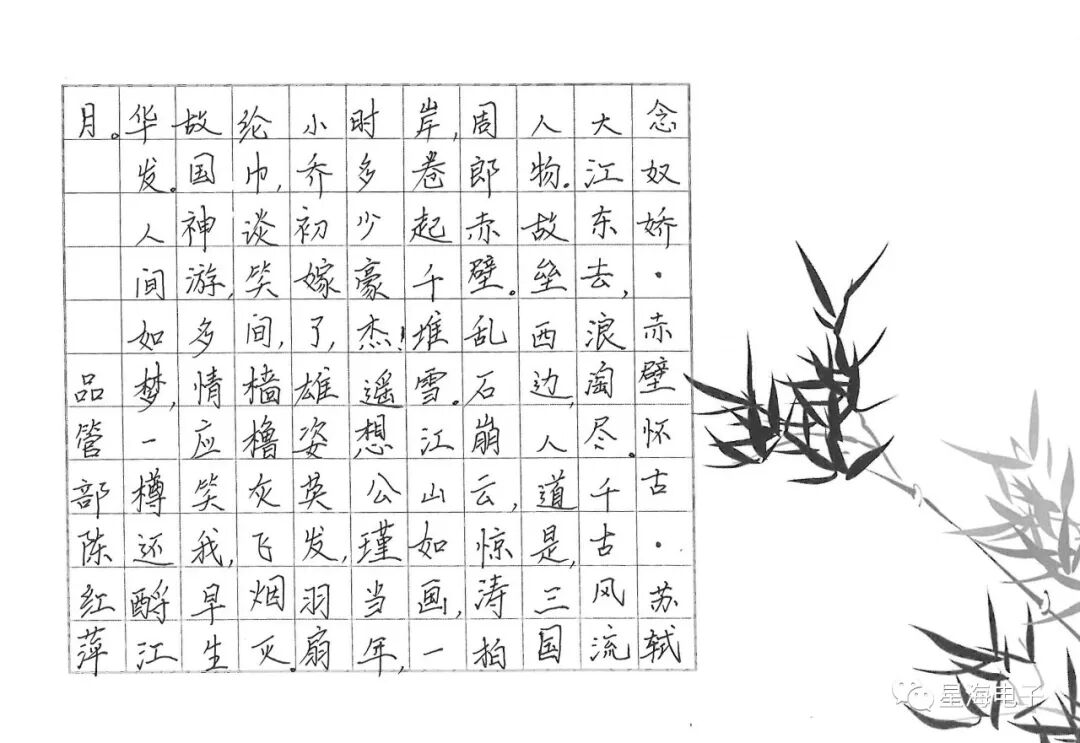 念奴娇·赤壁怀古·苏轼
大江东去,浪淘尽。千古风流
人物。故垒西边,人道是,三国
周郎赤壁。乱石崩云,惊涛拍
岸,卷起千堆雪。江山如画,一
时多少豪杰!遥想公瑾当年,
小乔初嫁了,雄姿英发,羽扇
纶巾,谈笑间,樯橹灰飞烟灭。
故国神游,多情应笑我,早生
华发。人间如梦,一樽还酹江
月。 品管部陈红萍
星海电子